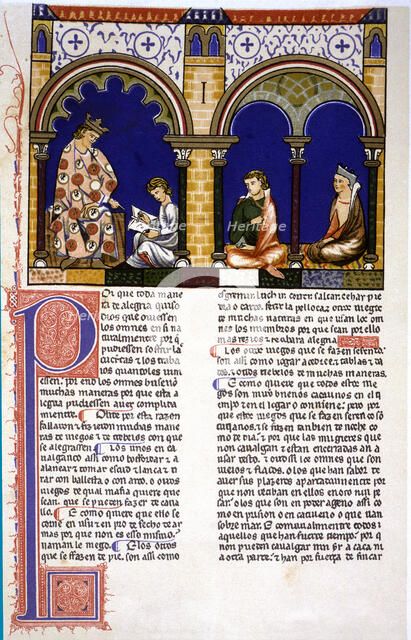 I
Por que toda mane
ra de alegria quiso
dios que ouiessen
los omnes en si na
turalmientre por q
pudiessen soffrir las
cueytas & los traba
ios quandoles uini
essen. por end los omnes buscaro
muchas maneras por que esta a
legria pudiessen auer complida
mientre. Onde por esta razon
fallaron & fizieron muchas mane
ras de iuegos & de trebeios con que
se alegrassen. Los unos en ca
ualgando assi como bofordar & a
alançar & tomar escud & lança & ti
rar con ballesta o con arco. o otros
iuegos de qual maña quiere que
sean. que se pueden fazer de caua
llo. E como quiere que ello se
torne en usu & en pro de fecho de ar
mas por que non es esso mismo.
llaman le iuego. E los otros
que se fazen de pie. son assi como
esgremir. luchar. correr. saltar. echar pie
dra o dardo. ferir la pellota. & otros iuegos
de muchas naturas en que usan los om
nes los miembros por que sean por ello
mas rezios & reciban alegria.
Los otros iuegos que se fazen seyendo.
son assi como iogar açedrex & tablas & da
dos. & otros trebeios de muchas maneras.
E como quiere que todos estos iue
gos son muy buenos cadaunos en el
tiempo & en el logar o conuienen; pero por
que estos iuegos que se fazen seyendo so
cutianos. & se fazen tambien de noche co
mo de dia; & por que las mugieres que
non caualgan & estan encerradas an a
usar desto. & otrossi los omnes que son
uieios & flacos. o los que han sabor de
auer sus plazeres apartadamientre por
que non reciban en ellos enoio nin pe
sar. o los que son en poder ageno assi co
mo en prision o en catiuerio o que uan
sobre mar. E comunalmientre todos
aquellos que han fuerte tiempo. por q
non pueden caualgar nin yr a caça ni
a otra parte. & han por fuerça de fincar
Heritage